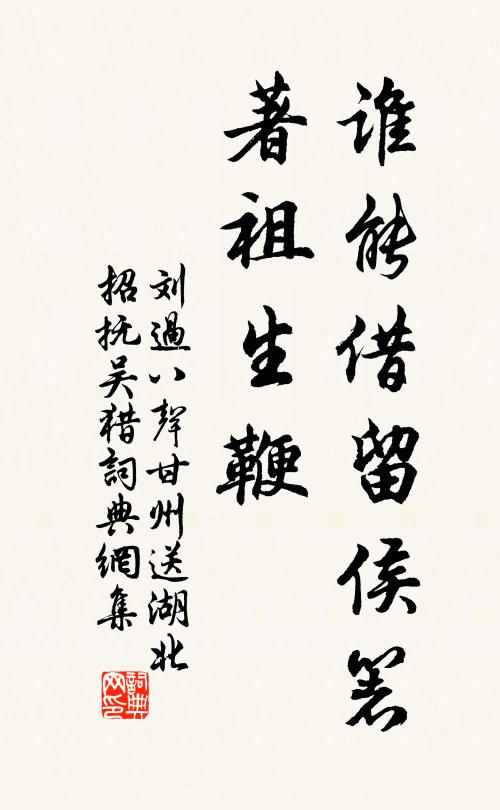 谁能借留侯箸
著祖生鞭
刘過八聲甘州送湖北
招抚吴猎詞典網集
詞典网印